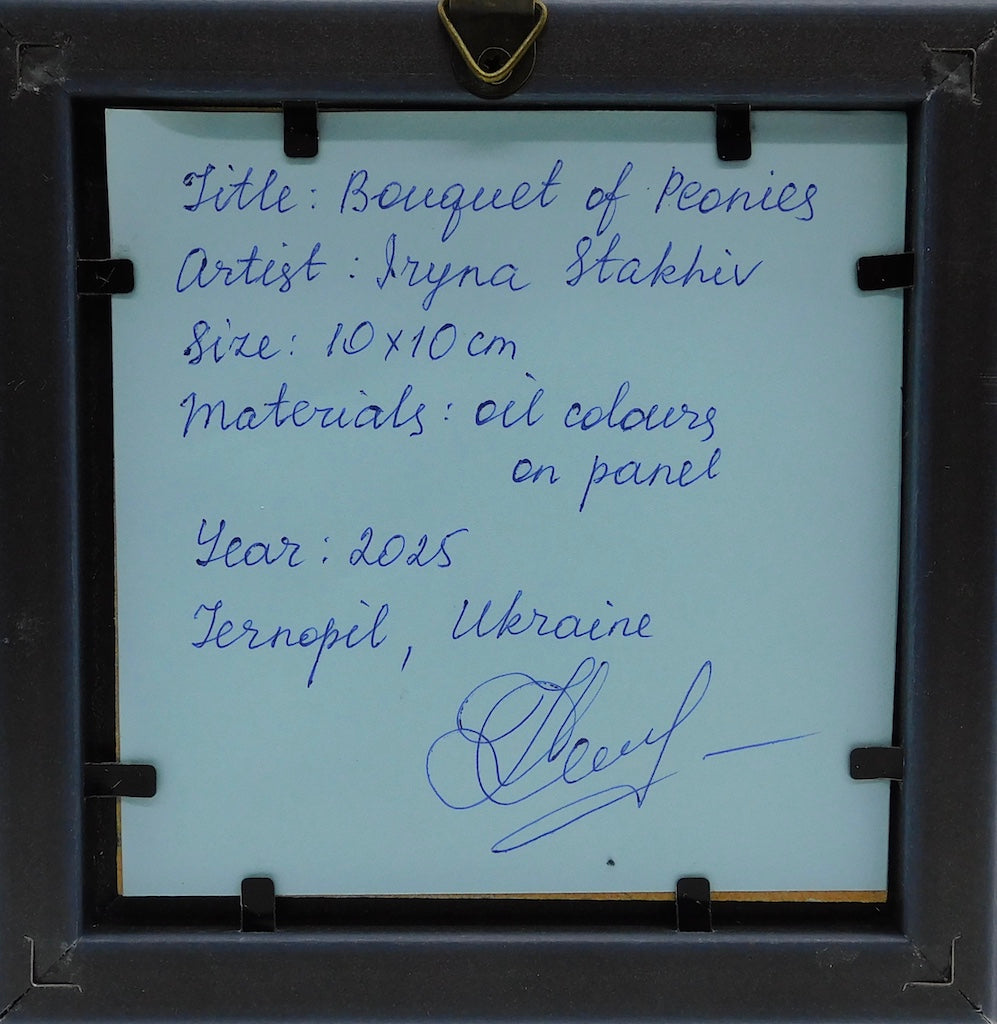 Title: Bouquet of Peonies
Artist: Iryna Stakhiv
Size: 10x10 cm
Materials: oil colours
on panel
Year: 2025
Ternopil, Ukraine